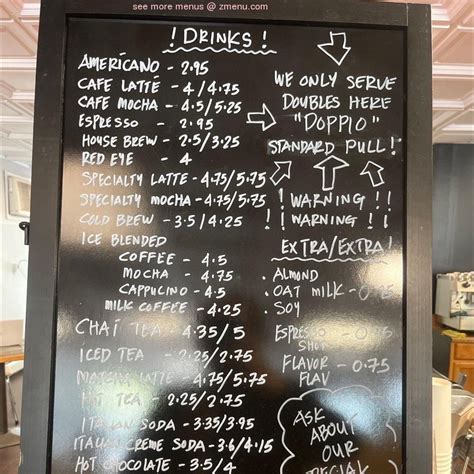 see more menus @ zmenu.com
! DRINKS !
AMERICANO - 2.95
CAFE LATTE - 4/4.75
CAFE MOCHA - 4.5/5.25
ESPRESSO - 2.95
HOUSE BREW - 2.5/3.25
RED EYE - 4
SPECIALTY LATTE - 4.75/5.75
SPECIALTY MOCHA - 4.75/5.75
COLD BREW - 3.5/4.25
ICE BLENDED
COFFEE - 4.5
MOCHA - 4.75
CAPPUCINO - 4.5
MILK COFFEE - 4.25
CHAI TEA - 4.35/5
ICED TEA - 2.25/2.75
MATCHA LATTE - 4.75/5.75
HOT TEA - 2.25/2.75
ITALIAN SODA - 3.35/3.95
ITALIAN CREME SODA - 3.6/4.15
HOT CHOCOLATE - 3.5/4
WE ONLY SERVE
DOUBLES HERE
"DOPPIO"
STANDARD PULL!
! WARNING !!
! WARNING ! !
EXTRA/EXTRA!
. ALMOND
. OAT MILK -
. SOY
ESPRESSO -
SHOT
FLAVOR - 0.75
FLAV
ASK
ABOUT
OUR